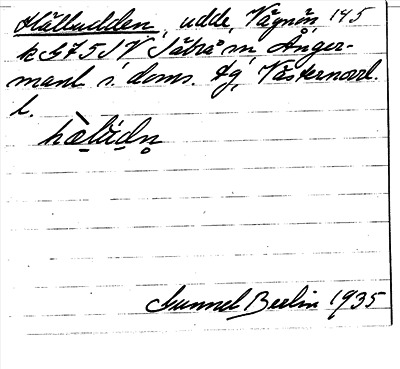 Hälludden, udde, Vågnön, 145
k G751V Säbrå sn Ånger-
manl. s. doms. tg, Västernorrl.
l.
hæ̀lúdn̥
Gunnel Berlin 1935